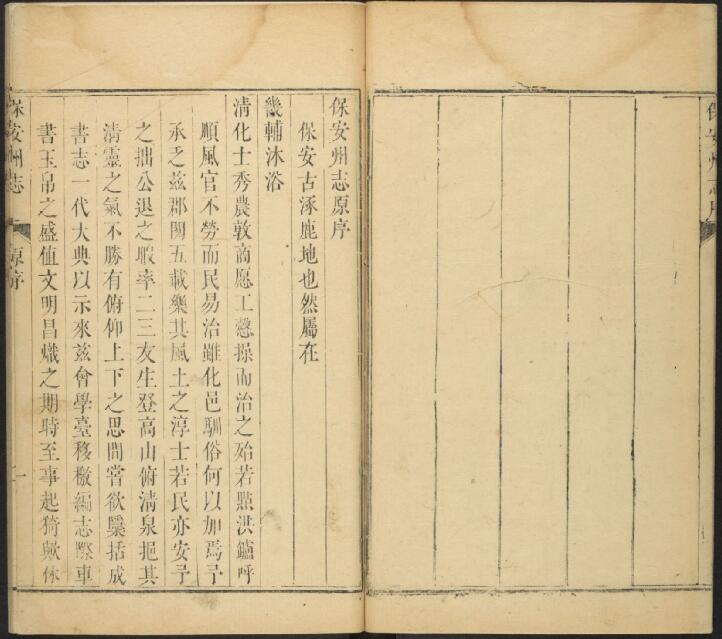 保安州志序
保安州志原序
保安古涿鹿地也然屬在
畿輔沐浴
清化士秀農敦商愿工慤操而治之殆若點洪鑪呼
順風官不勞而民易治雖化邑馴俗何以加焉予
承乏茲郡閱五載樂其風土之淳士若民亦安予
之拙公退之暇率二三友生登高山俯清泉挹其
清靈之氣不勝有俯仰上下之思間嘗欲櫽括成
書志一代大典以示來茲會學臺移檄編志際車
書玉帛之盛值文明昌熾之期時至事起猗歟休
保安州志 原序 一